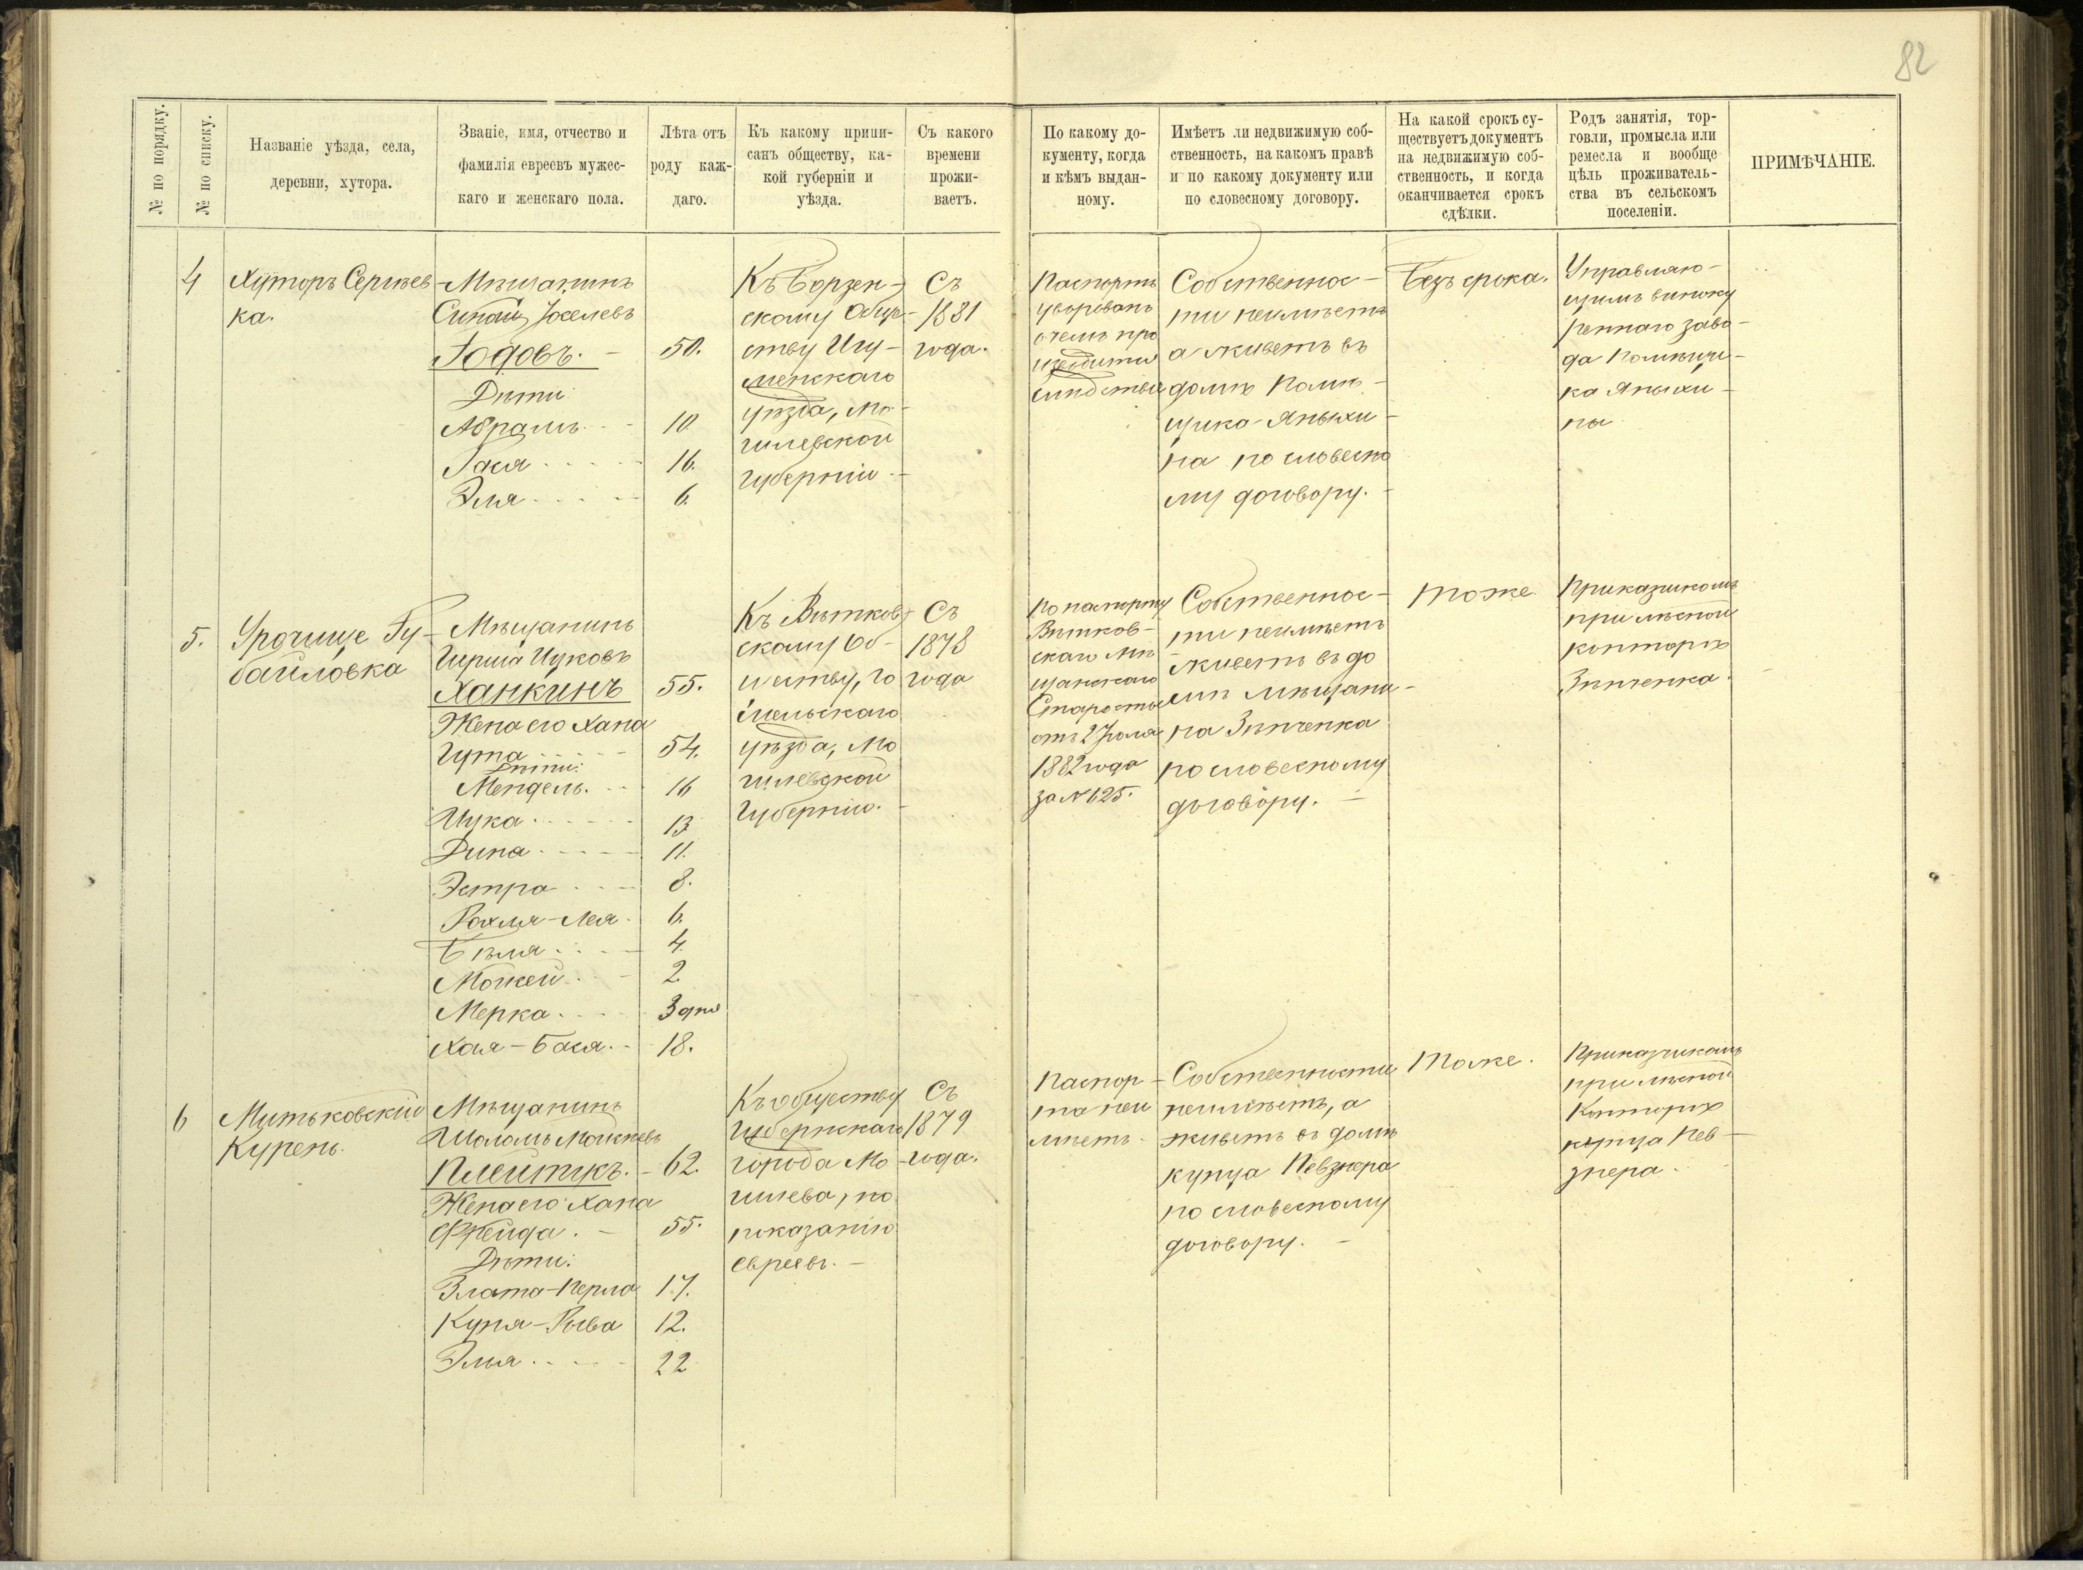 82
№ по порядку.
№ по списку.
Названіе уѣзда, села,
деревни, хутора.
Званіе, имя, отчество и
фамилія евреевъ мужес-
каго и женскаго пола.
Лѣта отъ
роду каж-
даго.
Къ какому припи-
санъ обществу, ка-
кой губерніи и
уѣзда.
Съ какого
времени
прожи-
ваетъ.
По какому до-
кументу, когда
и кѣмъ выдан-
ному.
Имѣетъ ли недвижимую соб-
ственность, на какомъ правѣ
и по какому документу или
по словесному договору.
На какой срокъ су-
ществуетъ документъ
на недвижимую соб-
ственность, и когда
оканчивается срокъ
сдѣлки.
Родъ занятія, тор-
говли, промысла или
ремесла и вообще
цѣль проживатель-
ства въ сельскомъ
поселеніи.
ПРИМѢЧАНІЕ.
4
Хуторъ Сергѣев-
ка.
Мѣщанинъ
Іоселевъ
Годовъ. 50.
Дѣти
Абрамъ 10
Гася 16.
Эля 6.
скому Обще-
ству Игу-
менскаго
уѣзда, Мо-
гилевской
губерніи
Съ
1881
года.
Паспортъ
уворованъ
о чемъ про
изводится
слѣдствіе
Собственнос-
ти неимѣетъ
а живетъ въ
домѣ Помѣ-
щика Яныхи-
на по словесно
му договору.
Безъ срока.
Управляю-
щимъ виноку
реннаго заво-
да Помѣщи-
ка Яныхи-
ны
5.
Урочище Гу-
байловка
Мѣщанинъ
Гирша Ицковъ
Ханкинъ 55.
Жена его Хана
Гута 54.
Дѣти:
Мендель. 16
Ицка 13
Дина 11.
Эстра 8.
Рохля-Лея 6.
Бѣля 4.
Мовшей 2.
Мерка 3 дня
Хая-Бася. 18.
Къ Вѣтков-
скому Об-
ществу, Го
мельскаго
уѣзда, Мо
гилевской
Губерніи.
Съ
1878
года
По паспорту
Вѣтков-
скаго Мѣ
щанскаго
Старосты
отъ 2 Іюля
1882 года
за № 625.
Собственнос-
ти неимѣетъ
живетъ въ до
мѣ мѣщани-
на Зѣнченка
по словесному
договору.
тоже
Приказчикомъ
при лѣсной
конторѣ
Зѣнченка.
6
Митьковскій
Курень.
Мѣщанинъ
Шоломъ Моисѣевъ
Плейтукъ. 62.
Жена его Хана
Фрейда. 55.
Дѣти:
Злата-Перла 17.
Куня-Рыва 12.
Элья 22
Къ обществу
Губернскаго
города Мо-
гилева, по
показанію
евреевъ.
Съ
1879
года.
Паспор-
та неи
мѣетъ.
Собственности
неимѣетъ, а
живетъ въ домѣ
купца Певзнера
по словесному
договору.
Тоже.
Приказчикомъ
при лѣсной
Конторѣ
купца Пев-
знера.